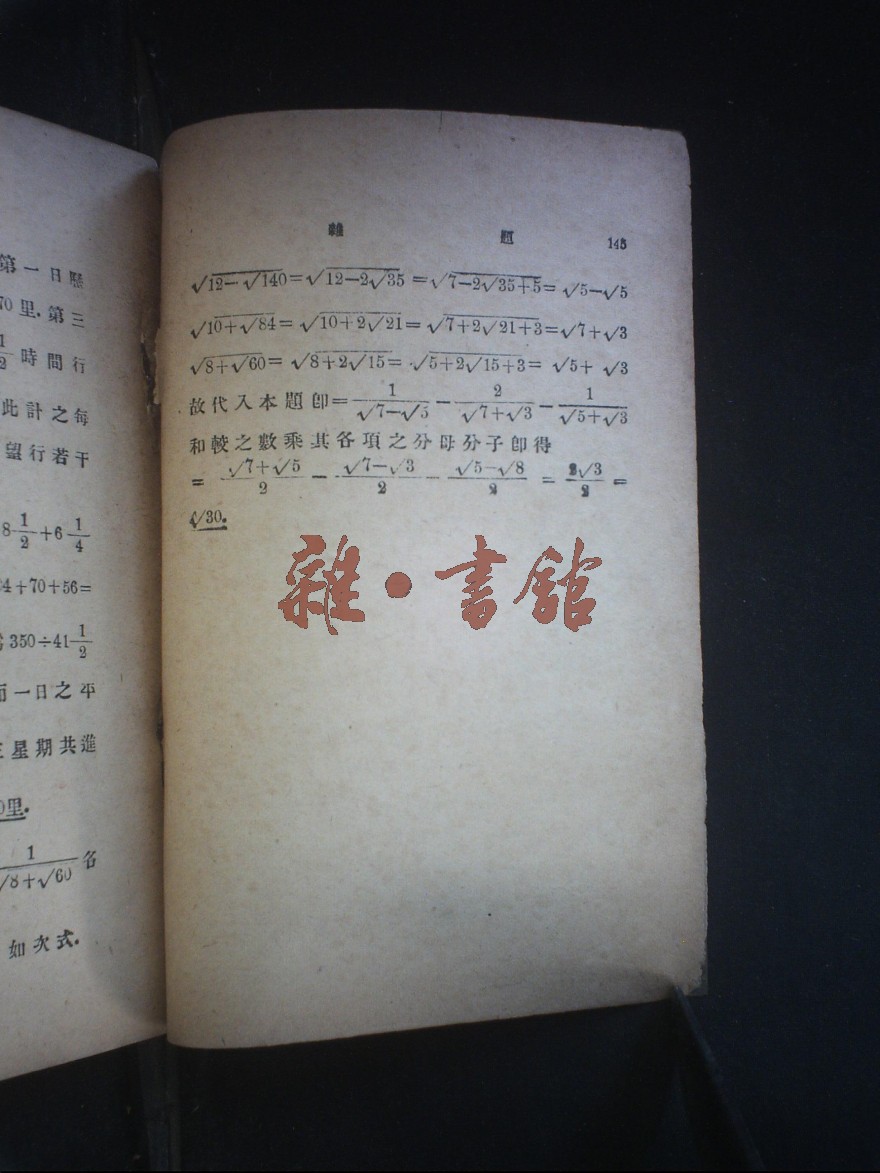 第一日
70里.第三
1/2 時間行
此計之每
望行若干
8 1/2+6 1/4
4+70+56=
350÷41 1/2
一日之平
星期共進
0里.
1/(√8+√60) 各
如次式.
雜 題 145
√12-√140=√12-2√35=√7-2√35+5=√5-√5
√10+√84=√10+2√21=√7+2√21+3=√7+√3
√8+√60=√8+2√15=√5+2√15+3=√5+√3
故代入本題卽=1/(√7-√5)-2/(√7+√3)-1/(√5+√3)
和較之數乘其各項之分母分子卽得
=(√7+√5)/2-(√7-√3)/2-(√5-√8)/2=2√3/2=
√30.
雜·書館